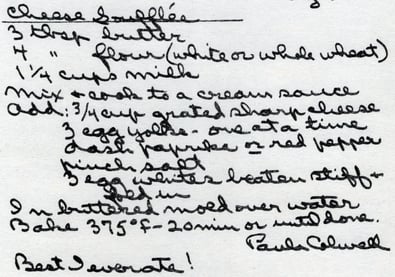 Cheese Soufflée
3 tbsp butter
4 " flour (white or whole wheat)
1 1/4 cups milk
Mix + cook to a cream sauce
Add: 3/4 cup grated sharp cheese
3 egg yolks - one at a time
dash paprika or red pepper
pinch salt
3 egg whites beaten stiff +
fold in
In buttered mold over water
Bake 375°F - 20 min or until done.
Paula Colwell
Best I ever ate!